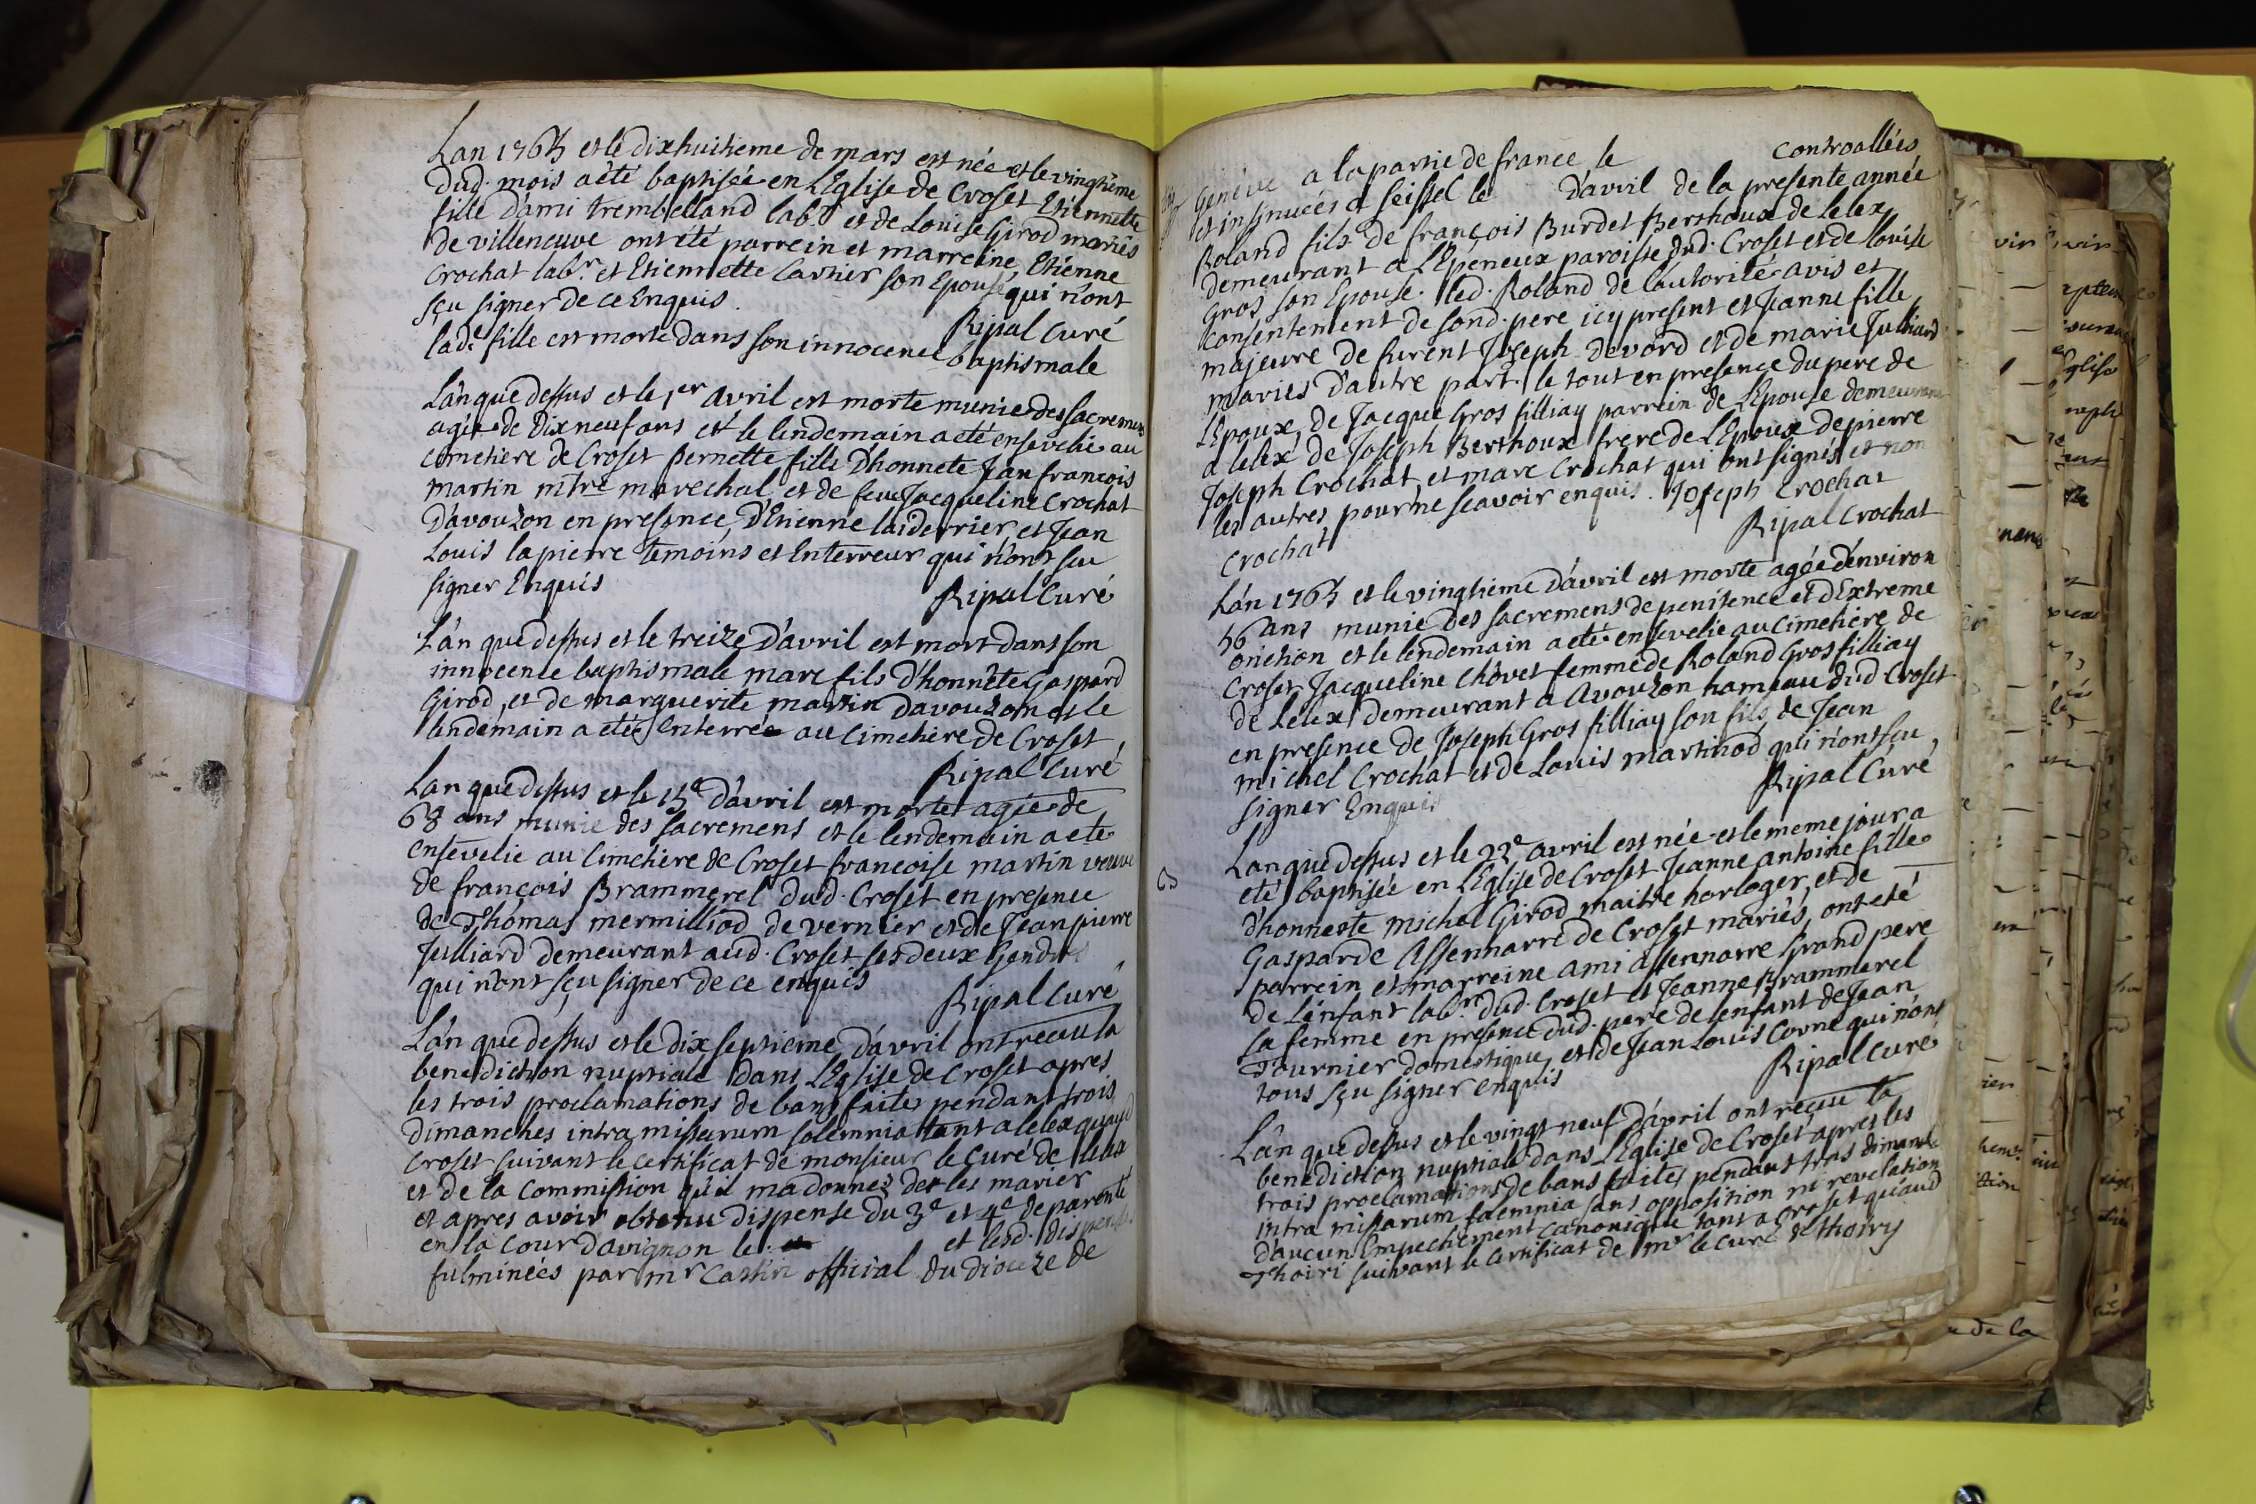 Lan 1765 et le dixhuitieme de mars est née et le vingtième
dud. mois a été baptisée en L'Eglise de Croset Etiennette
fille d'ami trembelland lab.r et de Louise Girod mariés
de villeneuve ont été parrein et marreine Etienne
Crochat lab.r et Etiennette Cartier son Epouse qui n'ont
sçu signer de ce Enquis.
Ripal Curé
lad.e fille est morte dans son innocence baptismale
L'an que dessus et le 1er avril est morte munie des sacremens
agée de dix neuf ans et le lendemain a eté ensevelie au
cimetiere de Croset pernette fille d'honnete Jean françois
martin m.tre marechal et de feue Jacqueline Crochat
d'avouzon en presence d'Etienne laiderrier, et Jean
Louis lapierre temoins et Enterreur qui n'ont sçu
signer Enquis
Ripal Curé
L'an que dessus et le treize d'avril est mort dans son
innocence baptismale marc fils d'honnête Gaspard
Girod, et de marguerite martin d'avouzon et le
lendemain a eté Enterré au Cimetiere de Croset
Ripal Curé
Lan que dessus et le 15e d'avril est morte agée de
68 ans munie des sacremens et le lendemain a eté
ensevelie au Cimetiere de Croset francoise martin veuve
de françois Brammerel dud. Croset en presence
de Thomas mermilliod de vernier et de Jean pierre
Julliard demeurant aud. Croset ses deux Gendres
qui n'ont sçu signer de ce enquis
Ripal Curé
L'an que dessus et le dix septieme d'avril ont reçu la
benediction nuptiale dans L'Eglise de Croset apres
les trois proclamations de bans faites pendant trois
dimanches intra missarum solemnia tant a lelex quaud
Croset suivant le certificat de monsieur le Curé de lelex
et de la Commission qu'il ma donnez de les marier
et apres avoir obtenu dispense du 3e et 4e de parenté
en la Cour davignon le et lesd. dispenses
fulminées par mr Castin official du dioceze de
Genéve a la partie de france le controallées
et insinuées a seissel le d'avril de la presente année
Roland fils de françois Burdet Berthoux de Lelex
demeurant a L'Epeneux paroisse dud. Croset et de Louise
Gros son Epouse. led. Roland de l'autorité avis et
consentement de sond. pere icy present et Jeanne fille
majeure de furent Joseph Devord et de marie Julliard
mariés d'autre part. le tout en presence du pere de
L'Epoux, de Jacque Gros filliay parrein de L'Epouse demeurant
a lelex de Joseph Berthoux frere de L'Epoux de pierre
Joseph Crochat et marc Crochat qui ont signés et non
les autres pour ne scavoir enquis. Joseph Crochat
Ripal Crochat
Crochat
L'an 1765 et le vingtieme d'avril est morte agée d'environ
56 ans munie des sacremens de penitence et d'Extreme
onction et le lendemain a eté ensevelie au Cimetiere de
Croset Jacqueline Chovet femme de Roland Gros filliay
de Lelex demeurant a Avouzon hameau dud Croset
en presence de Joseph Gros filliay son fils de Jean
michel Crochat et de Louis martinod qui n'ont sçu
signer Enquis
Ripal Curé
Lan que dessus et le 22e avril est née et le meme jour a
eté baptisée en L'Eglise de Croset Jeanne antoine fille
d'honneste michel Girod maitre horloger, et de
Gasparde Assennarre de Croset mariés, ont eté
parrein et marreine ami assennarre Grand pere
de L'enfant lab.r dud. Croset et Jeanne Brammerel
sa femme en presence dud. pere de lenfant de Jean
Tournier domestique, et de Jean Louis Corne qui n'ont
tous sçu signer enquis
Ripal Curé
L'an que dessus et le vingt neuf d'avril ont reçue la
benediction nuptiale dans L'Eglise de Croset apres les
trois proclamations de bans faites pendant trois dimanches
intra missarum solemnia sans opposition ni revelation
daucun Empechement canonique tant a croset qu'aud
Thoiri suivant le certificat de mr le curé de Thoiry